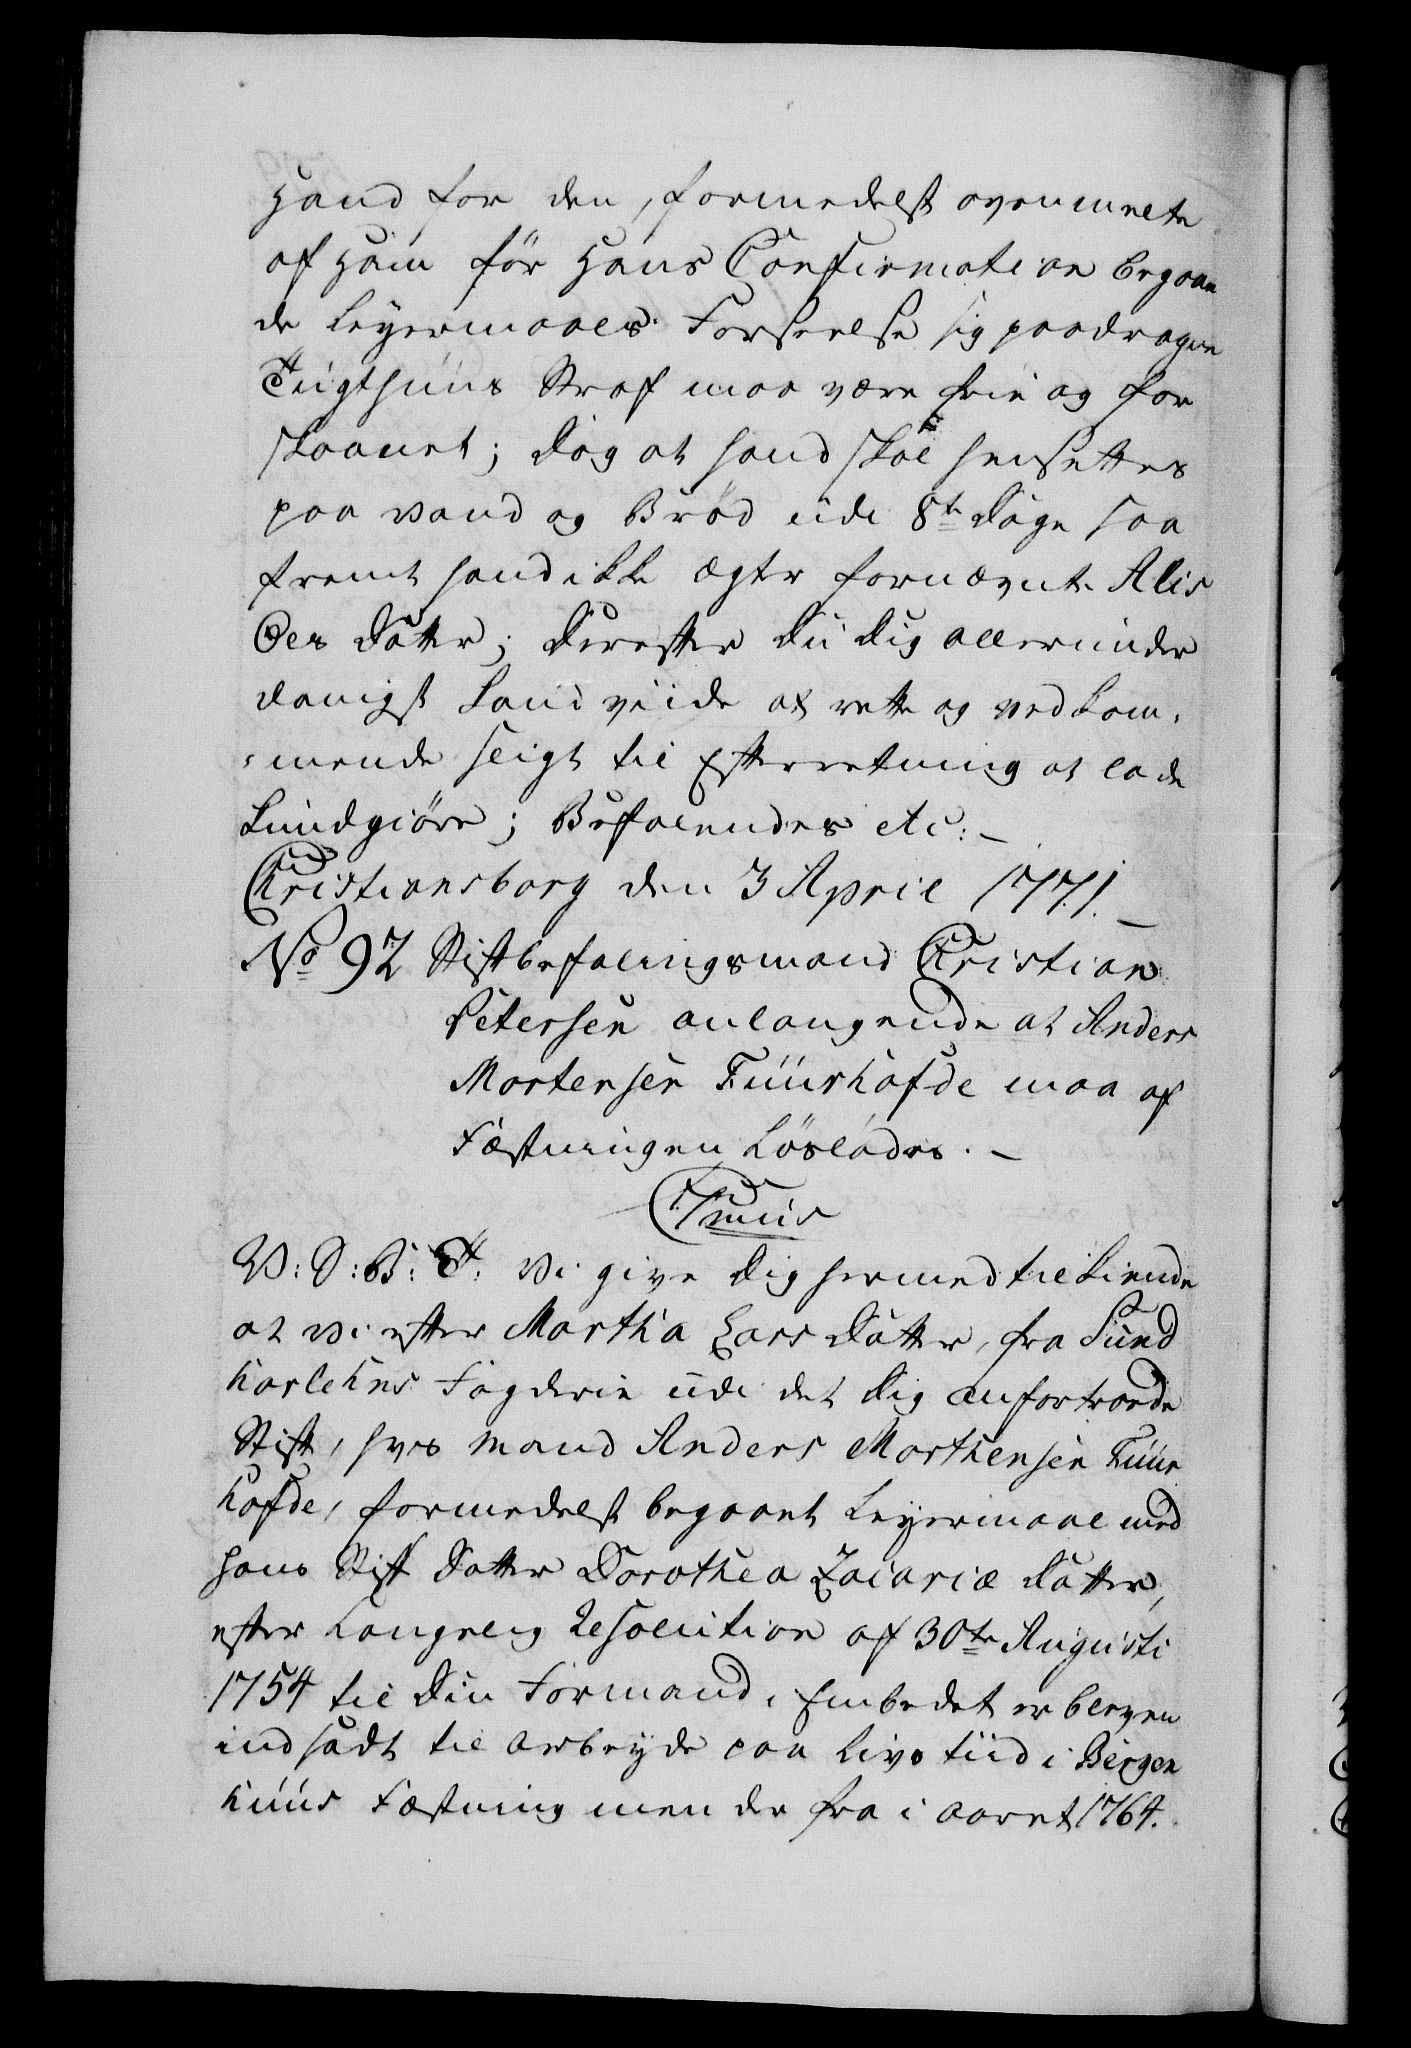 Hand for den, formedelst ovenmelte
af Ham för Hans Confirmation begaan
de Leyermaals Forseelse sig paadragne
Tugthuus Straf maa være frie og for
skaanet; Dog at hand skal hensettes
paa Vand og Bröd udi 8te Dage saa
fremt hand ikke ægter fornævnte Alis
Ols Datter; Derefter Du Dig allerunder
danigst haver viide at rette og vedkom-
-mende sligt til Efterretning at lade
kundgiöre; Befalendes etc:
Christiansborg den 3 April 1771.
No 92 Stiftbefalingsmand Christian
Petersen anlangende at Anders
Mortensen Fuurhofde maa af
Fæstningen Löslades.
C7mus
V: S: B: T: Vi give Dig hermed tilkiende
at Vi efter Martha Lars Datter, fra Sund
horlehns Fogderie udi det Dig anfortroede
Stift, hvis Mand Anders Morthensen Fuur
hofde, formedelst begaaet Leyermaal med
hans Stif Datter Dorothea Zacariæ Datter,
efter Kongelig Resolution af 30te Augusti
1754 til Din Formand i Embedet er bleven
indsadt til Arbeyde paa Livs tiid i Bergen
huus Fæstning men der fra i Aaret 1764.